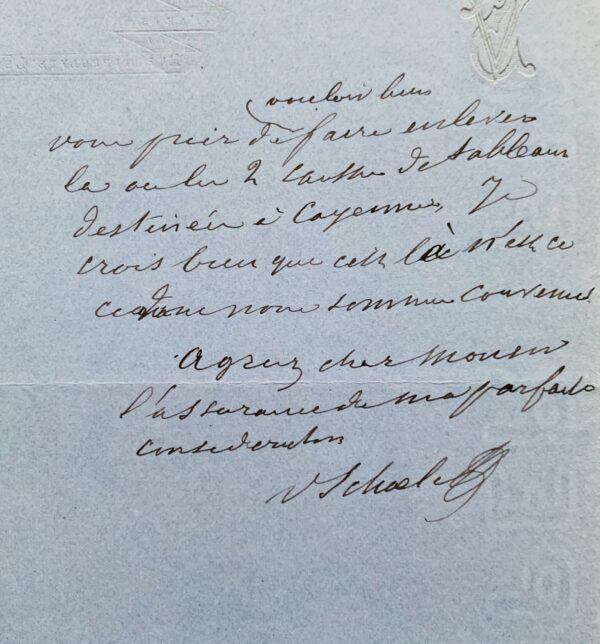 vouloir bien
vous prier de faire enlever
la ou les 2 caisses de tableaux
destinées à Cayenne, Je
crois bien que c'est là n'est ce
ce dont nous sommes convenus
Agreez cher Monsieur
l'assurance de ma parfaite
consideration
V Schoelcher